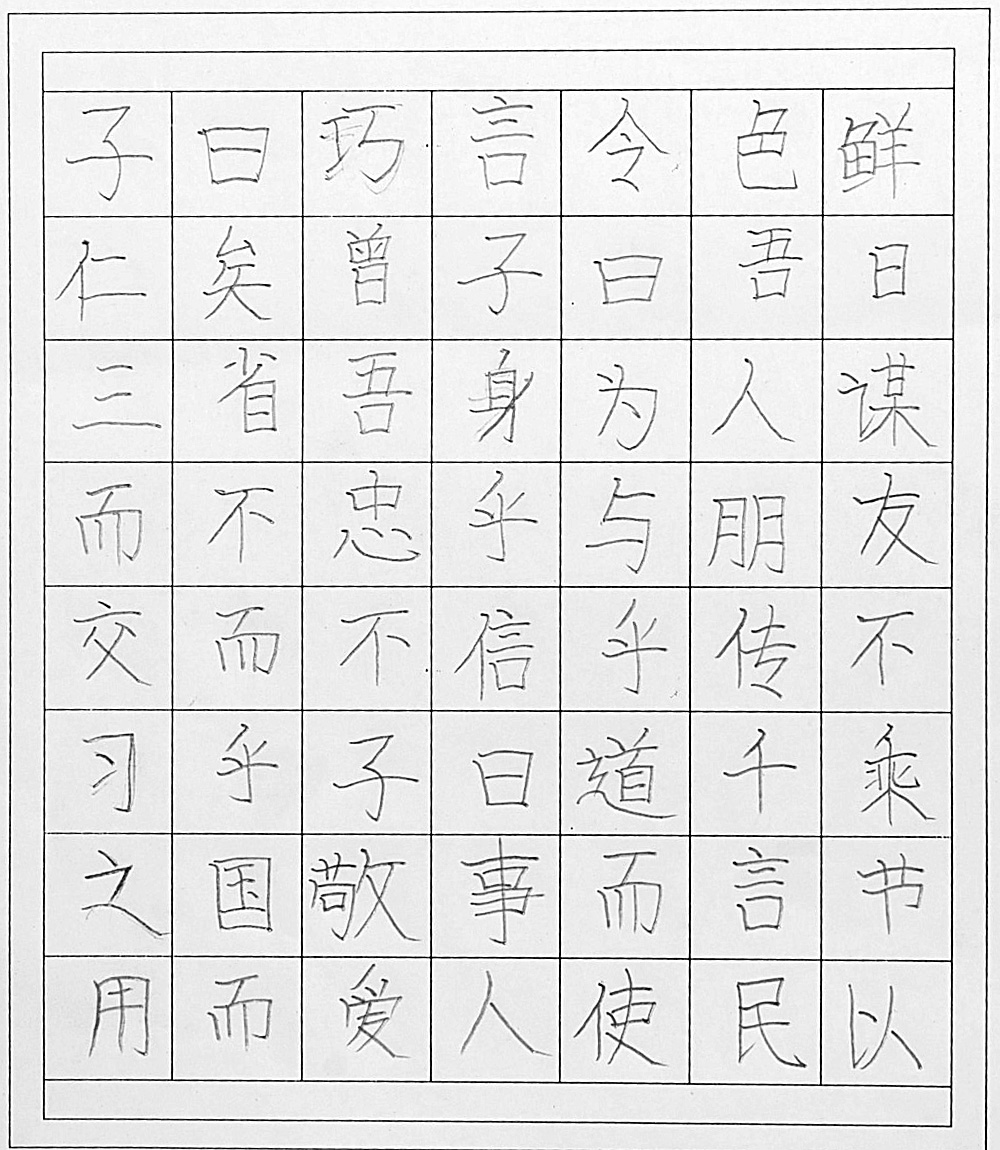 子曰巧言令色鲜
仁矣曾子曰吾日
三省吾身为人谋
而不忠乎与朋友
交而不信乎传不
习乎子曰道千乘
之国敬事而言节
用而爱人使民以